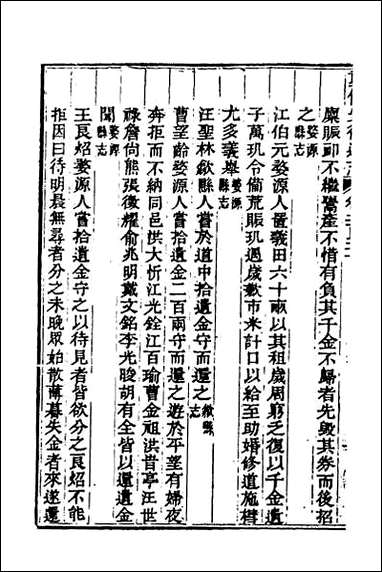 糜賑卹不繼鬻產不惜有負其千金不歸者先毀其券而後招
之婺源縣志
江伯元婺源人置義田六十畝以其租歲周窮乏復以千金遺
子萬璣令備荒賑璣遇歲歉市米計口以給至助婚修道施槥
尤多義舉婺源縣志
汪聖林歙縣人嘗於道中拾遺金守而還之歙縣志
曹望齡婺源人嘗拾遺金二百兩守而還之遊於平望有婦夜
奔拒而不納同邑洪大忻江光銓江百瑜曹金祖洪昔亭汪世
祿詹尙熊張徵耀俞兆明戴文銘李光晙胡有全皆以還遺金
聞婺源縣志
王艮炤婺源人嘗拾遺金守之以待見者皆欲分之艮炤不能
拒因曰待明晨無尋者分之未晚眾始散薄暮失金者來遂還